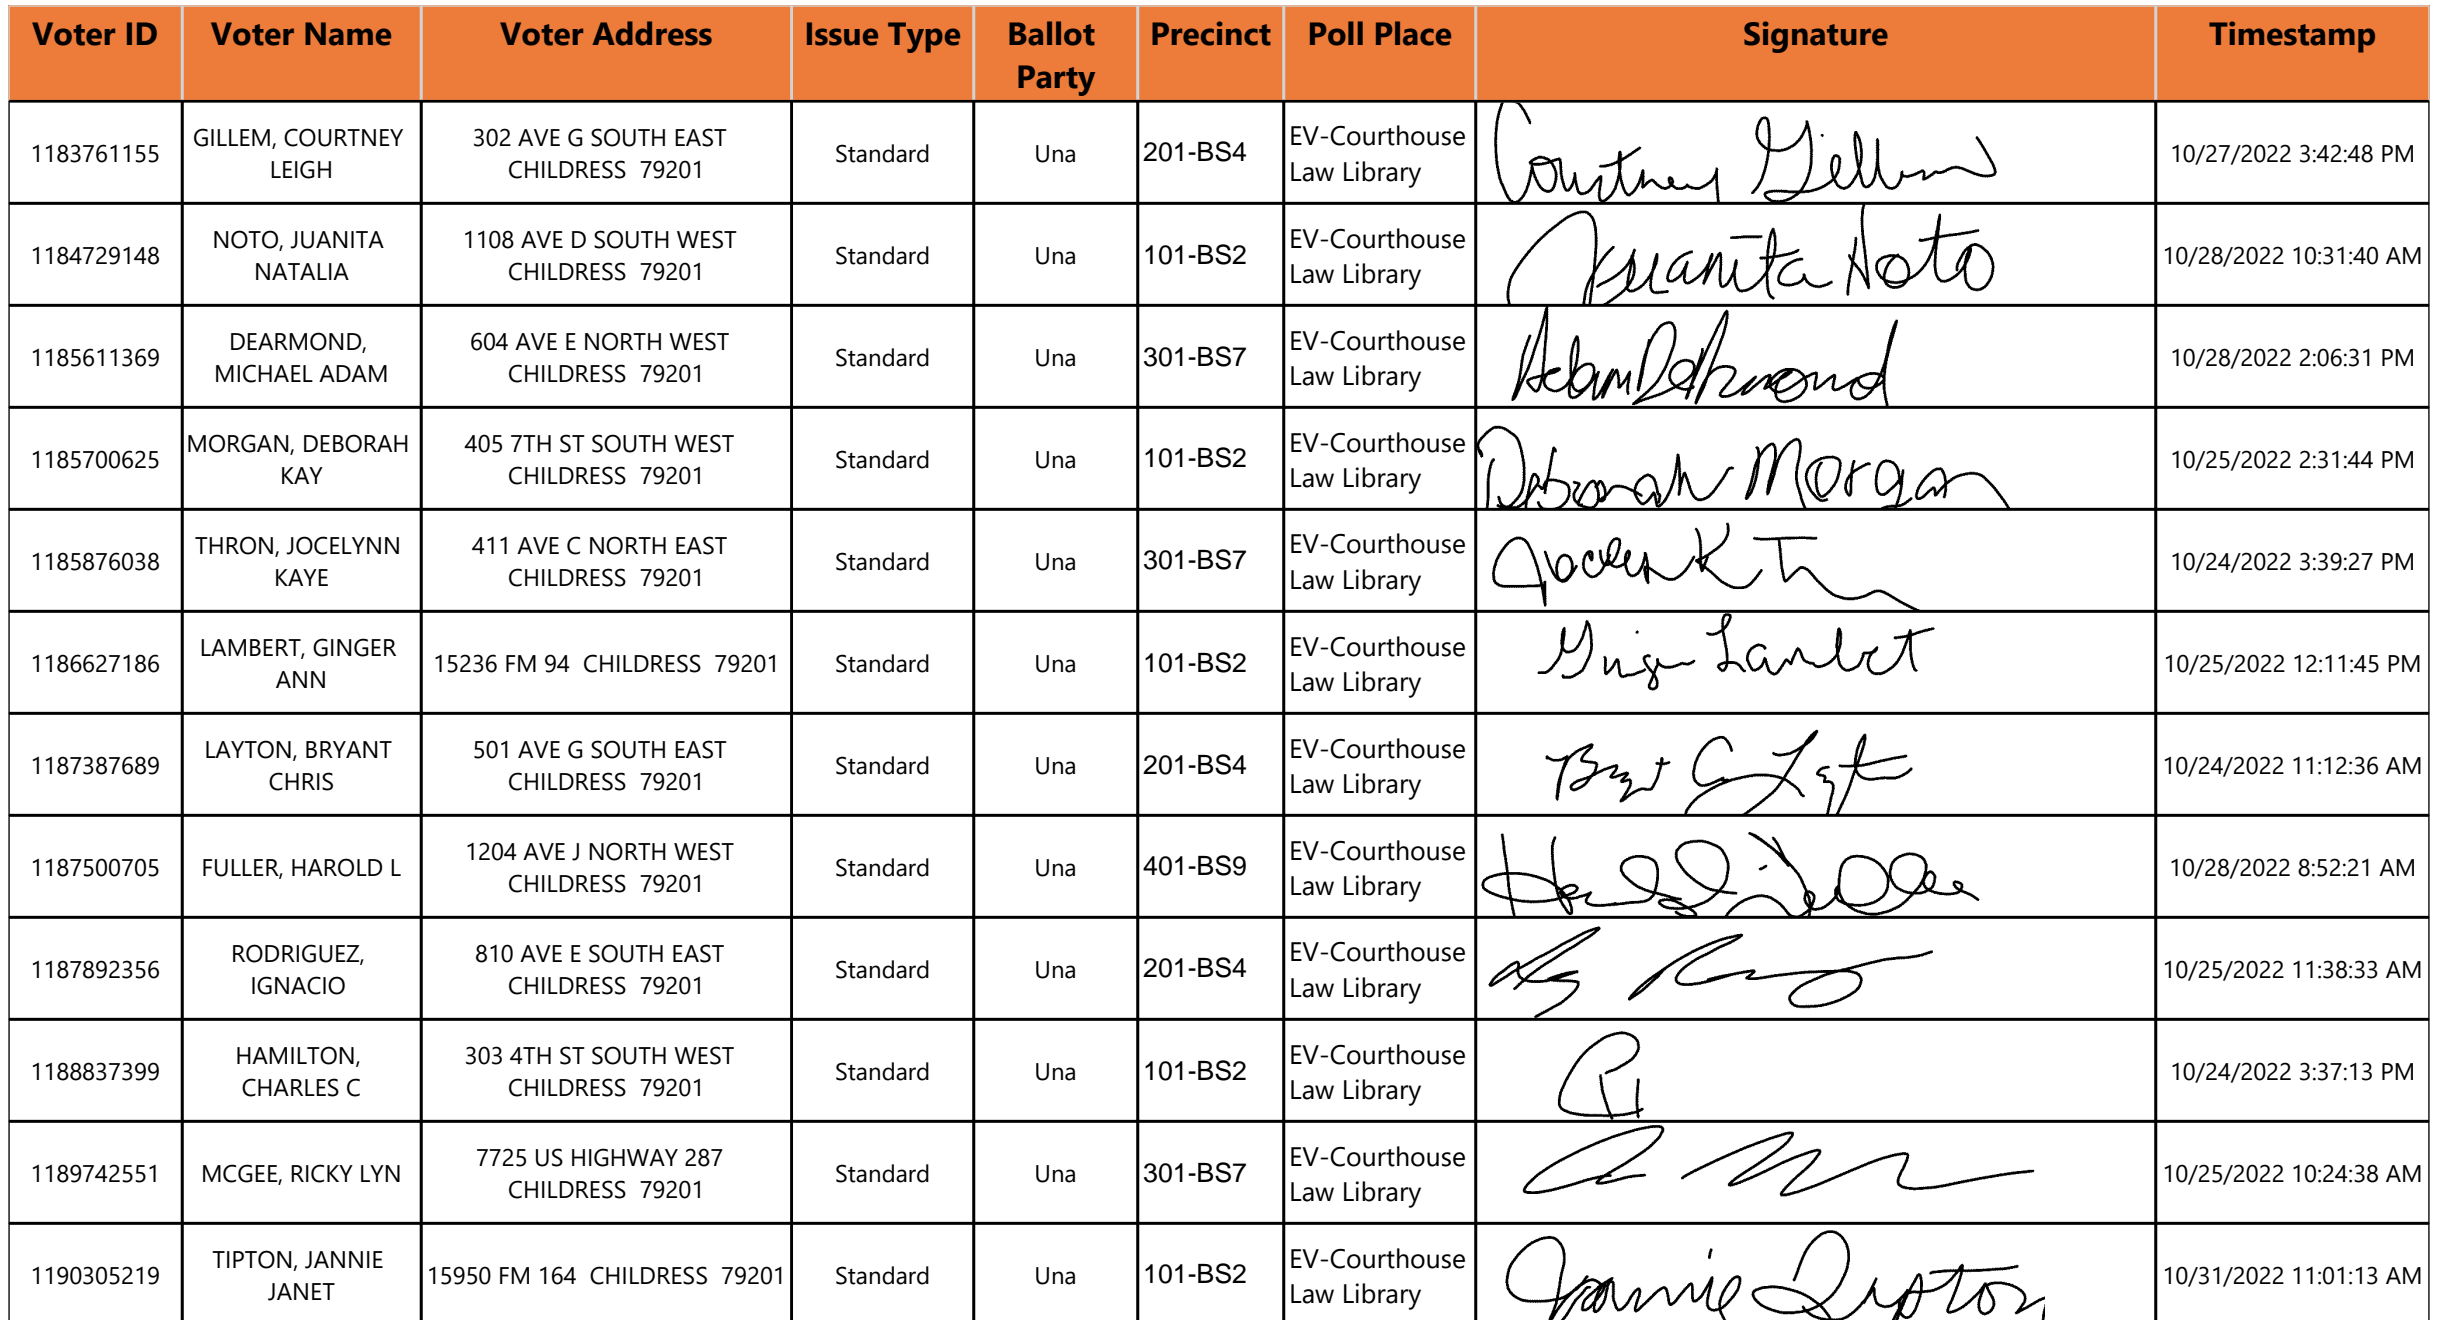 Voter ID Voter Name Voter Address Issue Type Ballot Party Precinct Poll Place Signature Timestamp
1183761155 GILLEM, COURTNEY LEIGH 302 AVE G SOUTH EAST CHILDRESS 79201 Standard Una 201-BS4 EV-Courthouse Law Library Courtney Gillem 10/27/2022 3:42:48 PM
1184729148 NOTO, JUANITA NATALIA 1108 AVE D SOUTH WEST CHILDRESS 79201 Standard Una 101-BS2 EV-Courthouse Law Library Juanita Noto 10/28/2022 10:31:40 AM
1185611369 DEARMOND, MICHAEL ADAM 604 AVE E NORTH WEST CHILDRESS 79201 Standard Una 301-BS7 EV-Courthouse Law Library Adam DeArmond 10/28/2022 2:06:31 PM
1185700625 MORGAN, DEBORAH KAY 405 7TH ST SOUTH WEST CHILDRESS 79201 Standard Una 101-BS2 EV-Courthouse Law Library Deborah Morgan 10/25/2022 2:31:44 PM
1185876038 THRON, JOCELYNN KAYE 411 AVE C NORTH EAST CHILDRESS 79201 Standard Una 301-BS7 EV-Courthouse Law Library 10/24/2022 3:39:27 PM
1186627186 LAMBERT, GINGER ANN 15236 FM 94 CHILDRESS 79201 Standard Una 101-BS2 EV-Courthouse Law Library Ginger Lambert 10/25/2022 12:11:45 PM
1187387689 LAYTON, BRYANT CHRIS 501 AVE G SOUTH EAST CHILDRESS 79201 Standard Una 201-BS4 EV-Courthouse Law Library 10/24/2022 11:12:36 AM
1187500705 FULLER, HAROLD L 1204 AVE J NORTH WEST CHILDRESS 79201 Standard Una 401-BS9 EV-Courthouse Law Library 10/28/2022 8:52:21 AM
1187892356 RODRIGUEZ, IGNACIO 810 AVE E SOUTH EAST CHILDRESS 79201 Standard Una 201-BS4 EV-Courthouse Law Library 10/25/2022 11:38:33 AM
1188837399 HAMILTON, CHARLES C 303 4TH ST SOUTH WEST CHILDRESS 79201 Standard Una 101-BS2 EV-Courthouse Law Library 10/24/2022 3:37:13 PM
1189742551 MCGEE, RICKY LYN 7725 US HIGHWAY 287 CHILDRESS 79201 Standard Una 301-BS7 EV-Courthouse Law Library 10/25/2022 10:24:38 AM
1190305219 TIPTON, JANNIE JANET 15950 FM 164 CHILDRESS 79201 Standard Una 101-BS2 EV-Courthouse Law Library Jannie Tipton 10/31/2022 11:01:13 AM